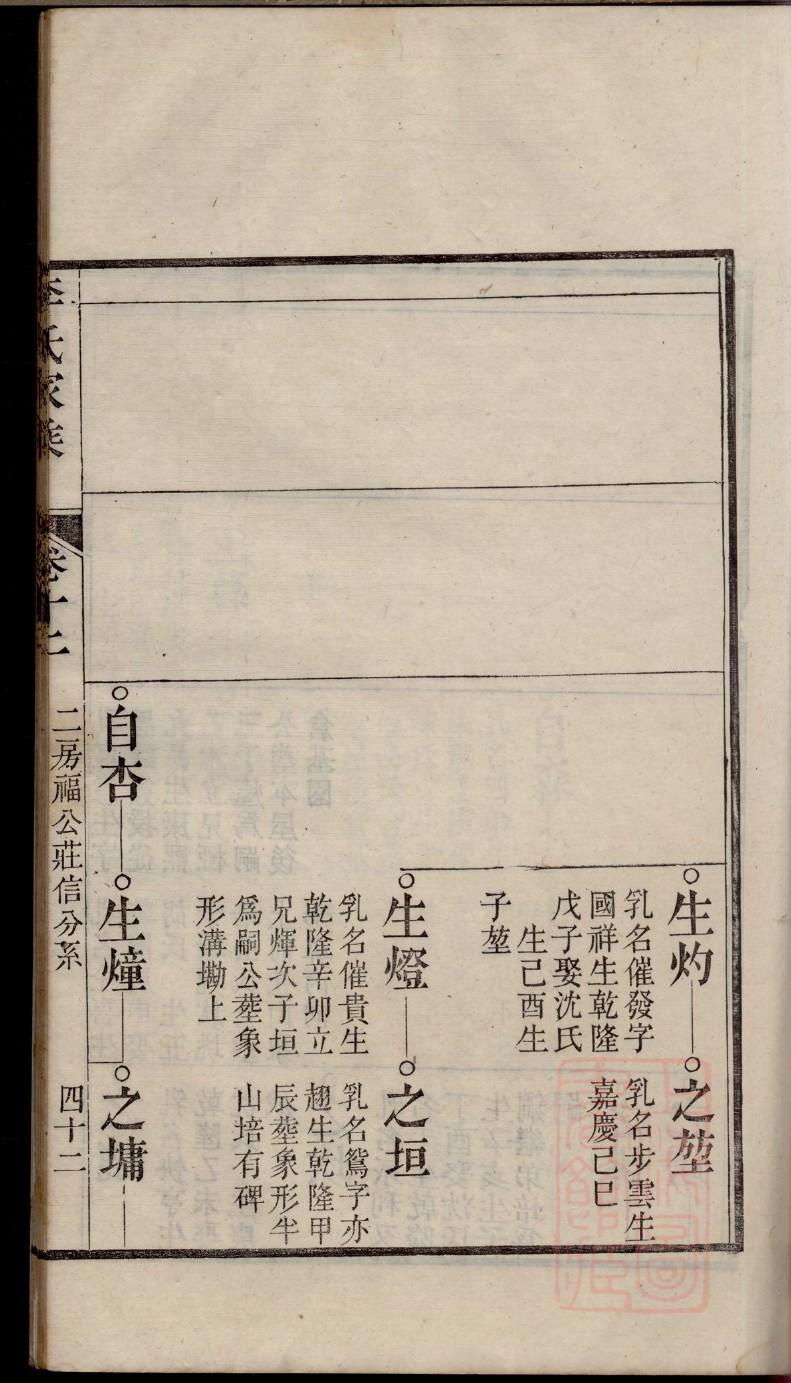 生灼
乳名催發字
國祥生乾隆
戊子娶沈氏
生己酉生
子堃
之堃
乳名步雲生
嘉慶己巳
生燈
乳名催貴生
乾隆辛卯立
兄煇次子垣
爲嗣公塟象
形溝塝上
之垣
乳名鴛字亦
趐生乾隆甲
辰塟象形半
山培有碑
自杏
生燑
之墉
李氏家乘
卷十二
二房福公莊信分系
四十二